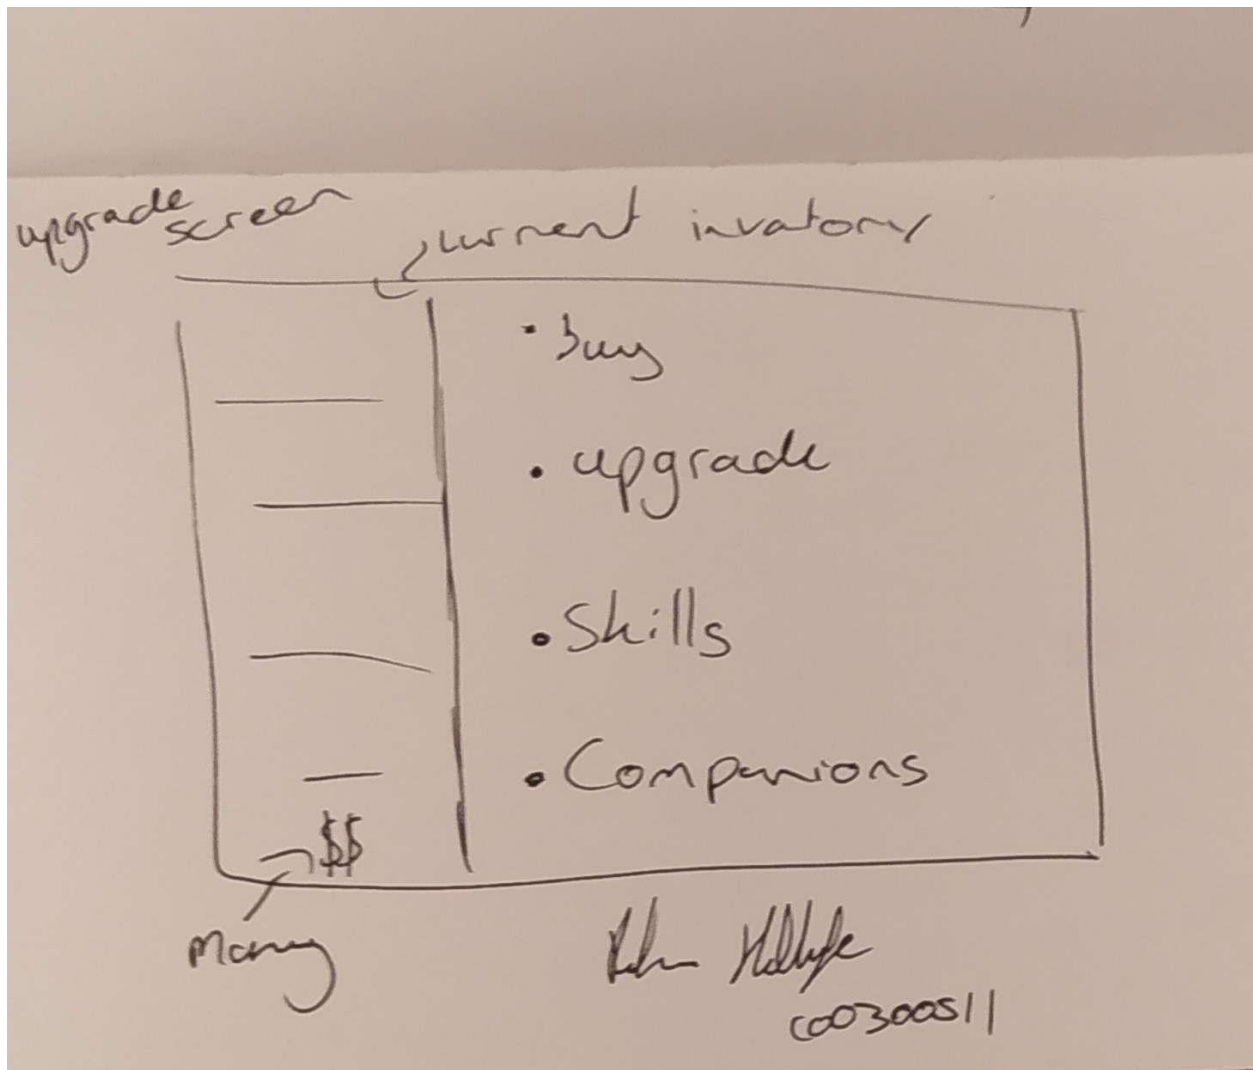 upgrade screen
current invatory
• buy
• upgrade
• Skills
• Companions
$$
Money
C00300511